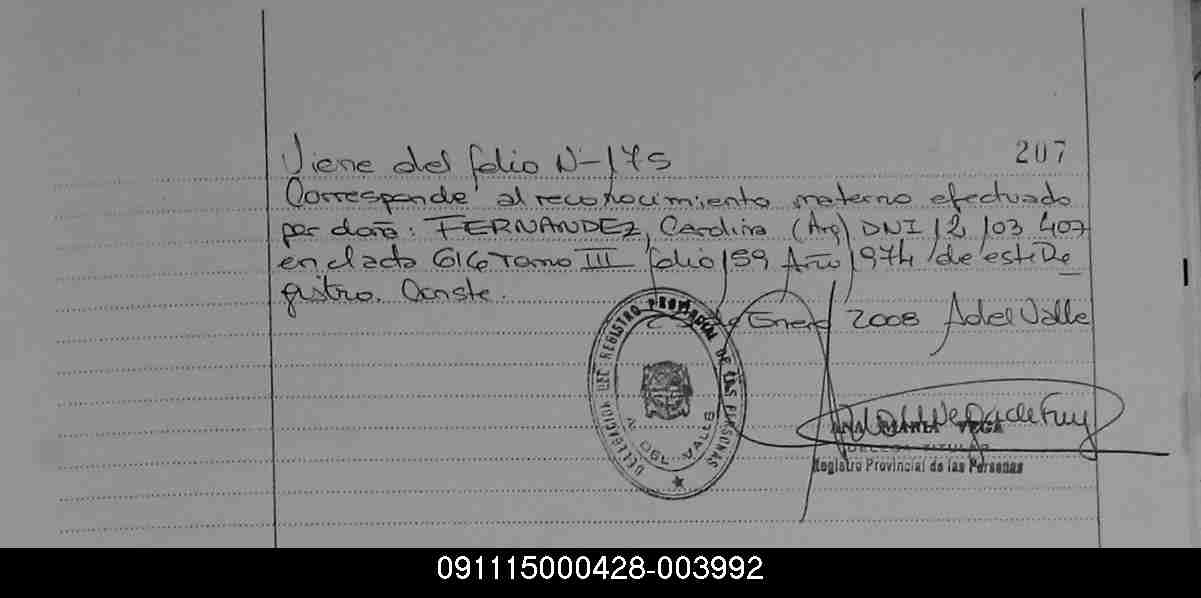 207
Viene del folio N-175
Corresponde al reconocimiento materno efectuado
por doña: FERNANDEZ, Carolina (Arg) DNI 12 103 407
en el acta 616 Tomo III folio 159 Año 1974 de este Re
gistro. Conste.
de Enero 2008 A del Valle
DELEGACION DEL REGISTRO PROVINCIAL DE LAS PERSONAS
A. DEL VALLE
VEGA
DELEG. TITULAR
Registro Provincial de las Personas
091115000428-003992